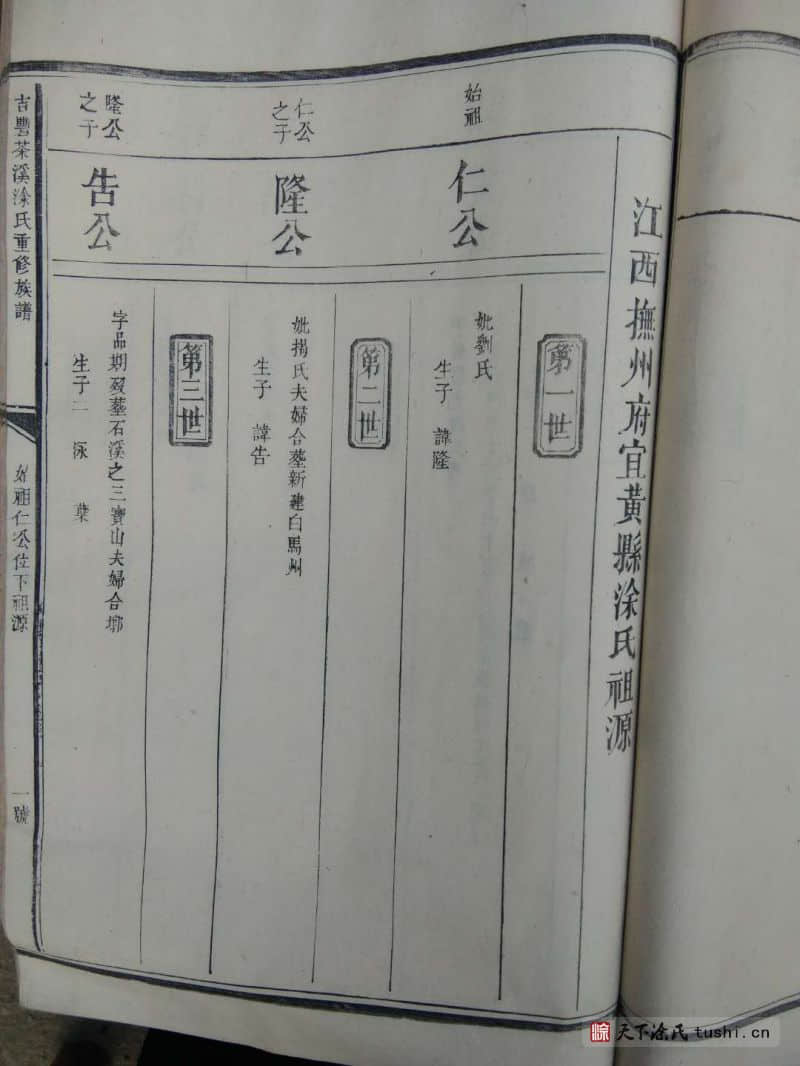 江西撫州府宜黃縣涂氏祖源
第一世
始祖
仁公
妣劉氏
生子 諱隆
第二世
仁公
之子
隆公
妣揭氏夫婦合塟新建白馬州
生子 諱告
第三世
隆公
之子
告公
字品期歿塟石溪之三寶山夫婦合塚
生子二 泳 葉
吉豐茶溪涂氏重修族譜
始祖仁公位下祖源
一號
天下涂氏tushi.cn